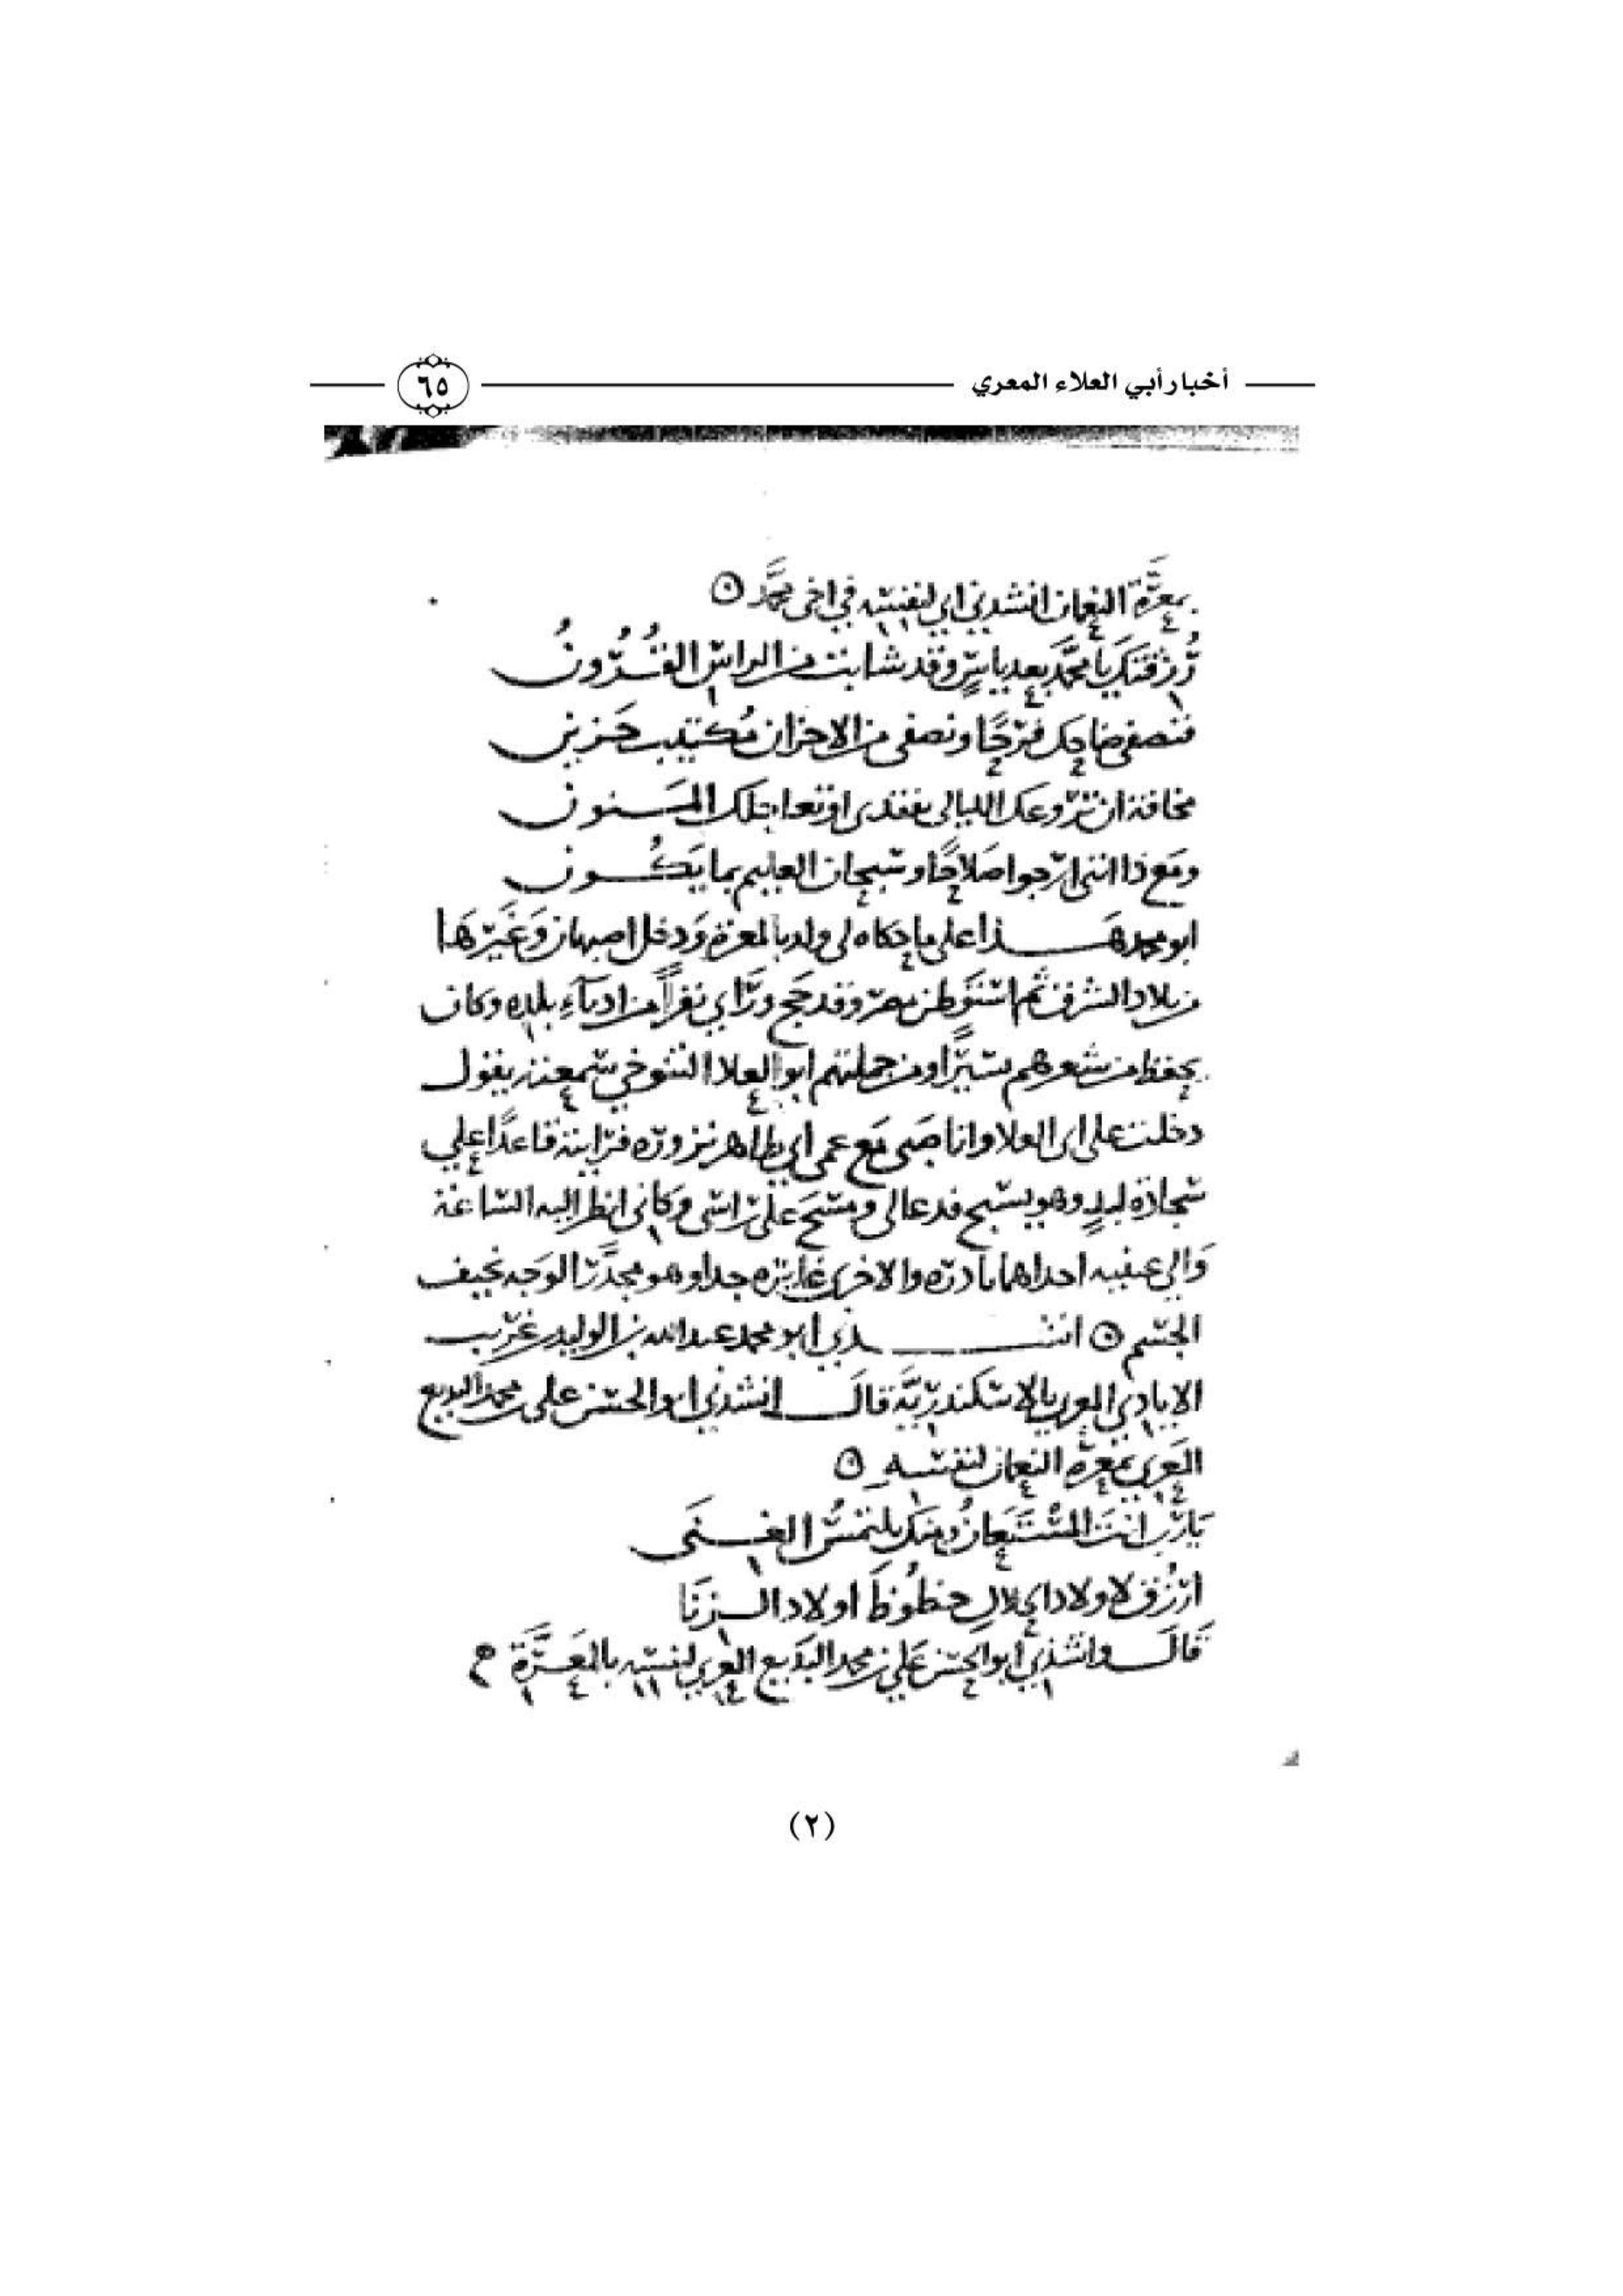 أخبار أبي العلاء المعري
٦٥
بمعرَّة النعمان انشدني ابي لنفسه في اخي محمَّد ه
رُزقتك يا محمَّد بعد ياسٍ وقد شابت من الراس القُرُونُ
فنصفي ضاحك فرحًا ونصفي من الاحزان مُكتئب حَزين
مخافة ان تروعك الليالي بفقدي او تعاجلك المنون
ومَع ذا انني ارجوا صَلاحًا وسبحان العليم بما يَكُون
ابو محمد هَذا على ما حكاه لي ولد بالمعرة وَدخل اصبهان وَغَيْرهَا
من بلاد الشرق ثم استَوطن مصر وقد حَج ورَاي نفرًا من ادبآءِ بلده وكان
يحفظ من شعرهم يسيرًا ومن جملتهم ابو العلا التنوخي سمعته يقول
دخلت على ابي العلا وانا صَبي مَع عمي ابي طاهر نزوره فرايته قاعدًا علي
سجادة لبدٍ وهو يسبح فدعا لي ومسَح على راسي وكاني انظر اليه الساعة
وَالي عينيه احداهما نادره والاخرى غايره جدا وهو مجدَّر الوَجه نحيف
الجسم ه انشدني ابو محمد عبد الله بن الوليد بن غريب
الايادي المعري بالاسكندريَّة قالَ انشدني ابو الحسن علي بن محمد البديع
المَعري بمعرة النعمان لنفسه ه
يَا رب انتَ المُسْتَعَانُ ومنك يلتمسُ الغِنَى
ارْزُق لاولاد الحلالِ حظُوظَ اولاد الزنَا
قَالَ وانشدني ابو الحسن عَلي بن محمد البَديع المعري لنفسه بالمَعَرَّة
(٢)